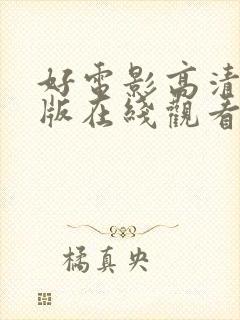 好電影高清
版在綫觀看
橘真央